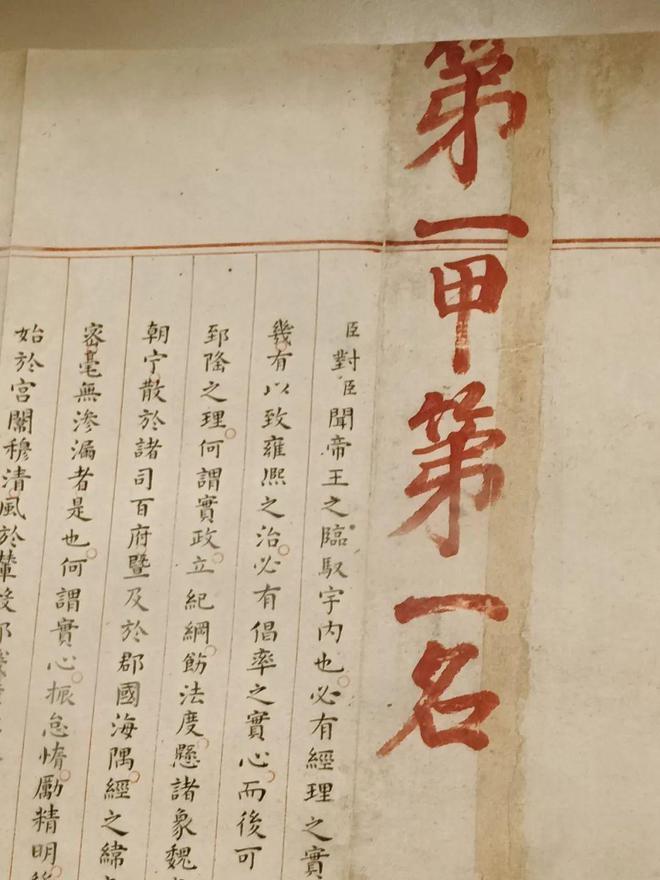 第一甲第一名
臣對臣聞帝王之臨馭宇內也必有經理之實
幾有以致雍熙之治必有倡率之實心而後可
郅隆之理何謂實政立紀綱飭法度懸諸象魏
朝宁散於諸司百府暨及於郡國海隅經之緯
密毫無滲漏者是也何謂實心振怠惰勵精明
始於宮闈穆清風於輦轂